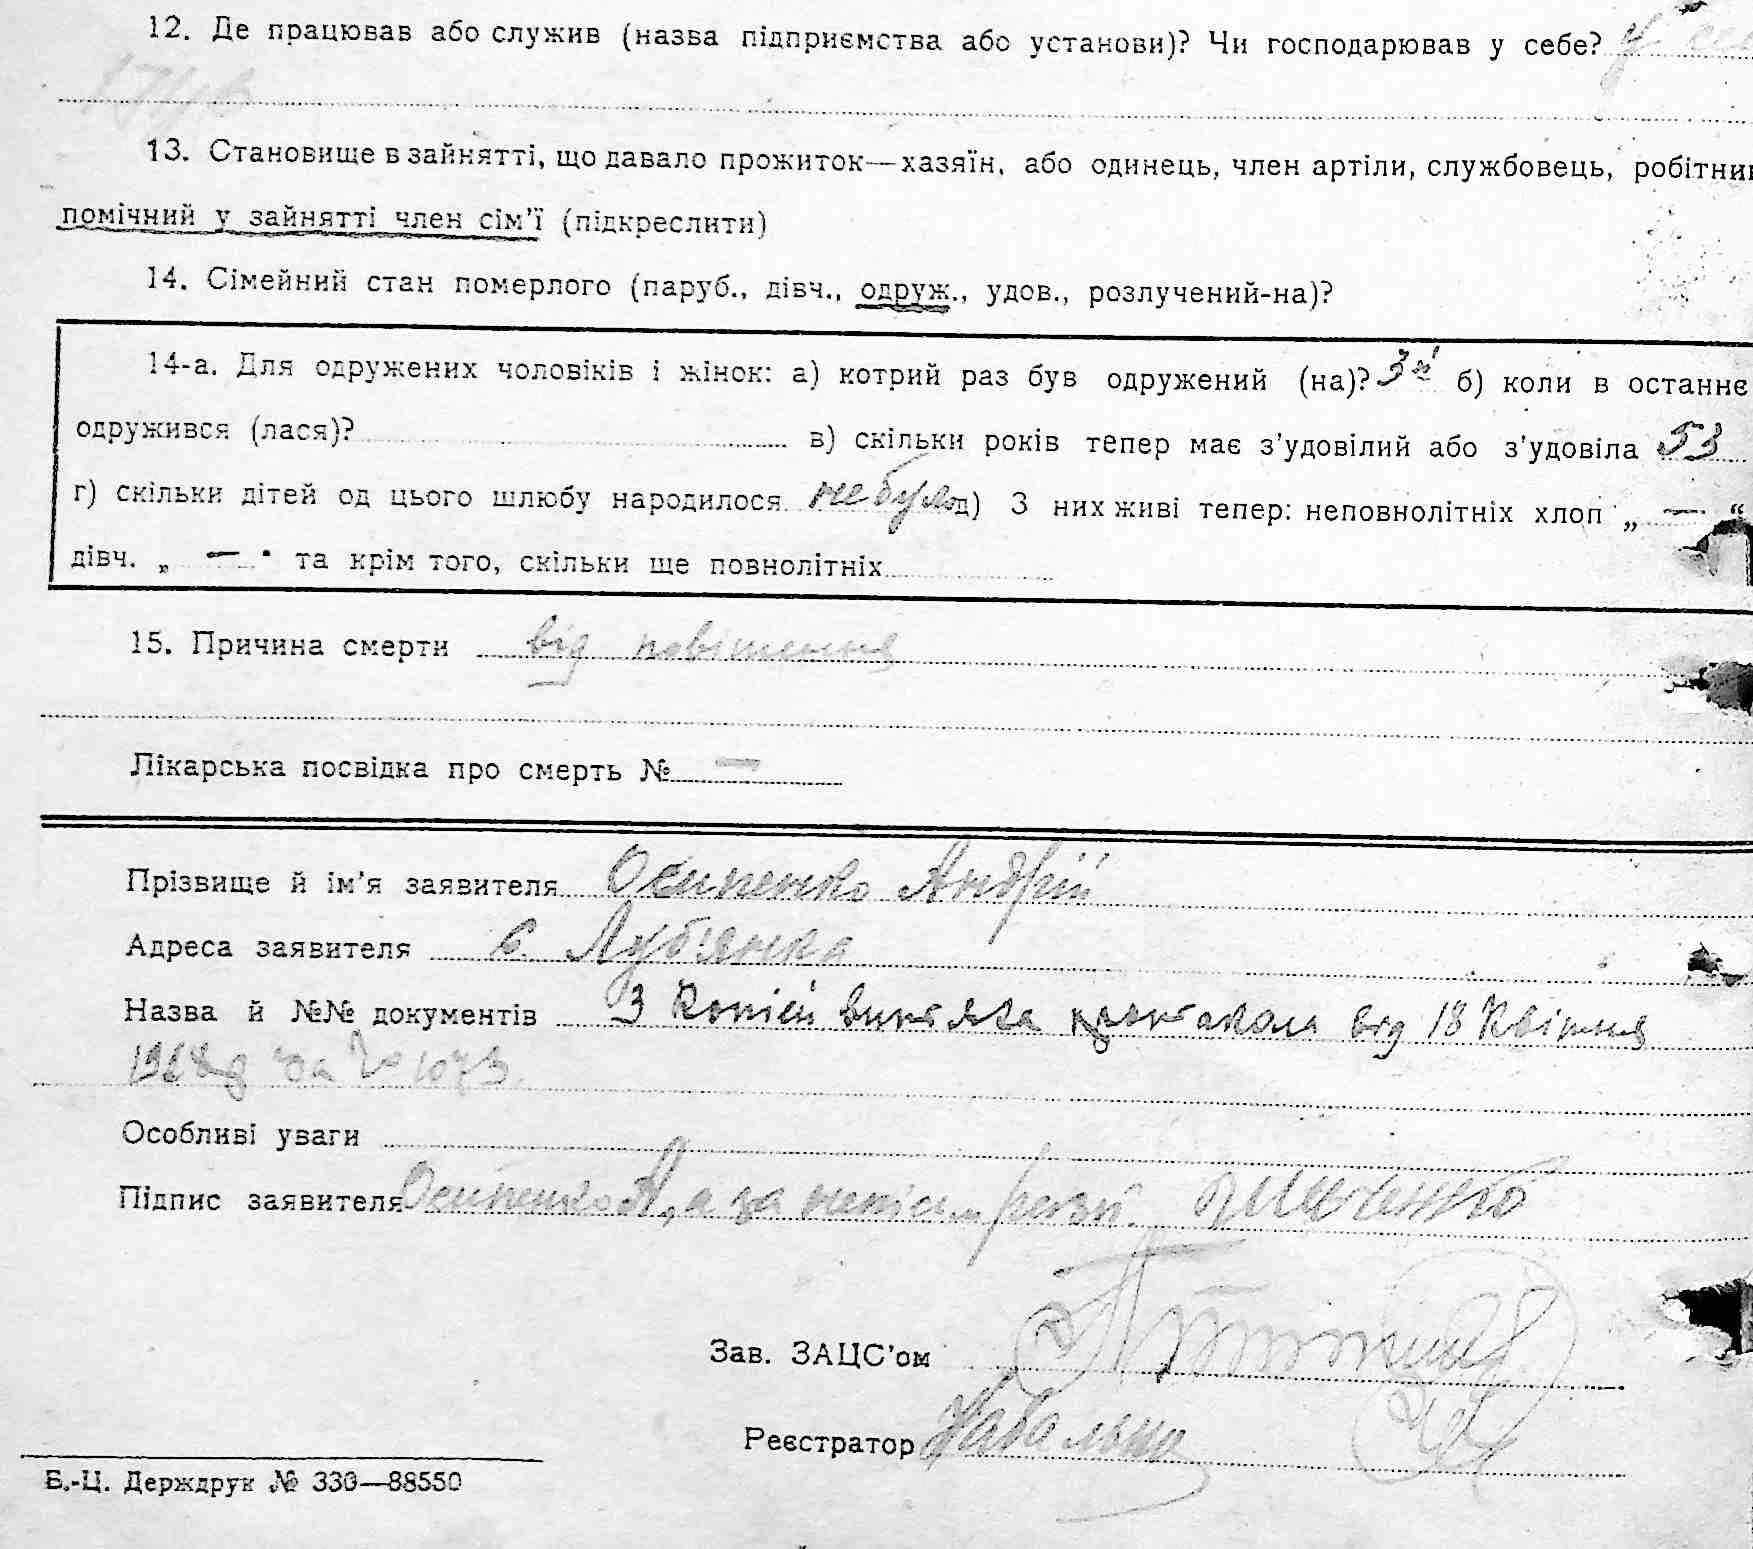 12. Де працював або служив (назва підприємства або установи)? Чи господарював у себе? у
13. Становище в зайнятті, що давало прожиток—хазяїн, або одинець, член артіли, службовець, робітник
помічний у зайнятті член сім’ї (підкреслити)
14. Сімейний стан померлого (паруб., дівч., одруж., удов., розлучений-на)?
14-а. Для одружених чоловіків і жінок: а) котрий раз був одружений (на)? 3й б) коли в останнє
одружився (лася)? в) скільки років тепер має з’удовілий або з’удовіла 53
г) скільки дітей од цього шлюбу народилося не було д) З них живі тепер: неповнолітніх хлоп „ — “
дівч. „ — “ та крім того, скільки ще повнолітніх
15. Причина смерти від повішення
Лікарська посвідка про смерть № —
Прізвище й ім’я заявителя Осипенко Андрій
Адреса заявителя с. Луб'янка
Назва й №№ документів З копій витяга протокола від 18 Квітня
за № 1073
Особливі уваги
Підпис заявителя Осипенко А, а за
Зав. ЗАЦС’ом
Реєстратор
Б.-Ц. Держдрук № 330—88550